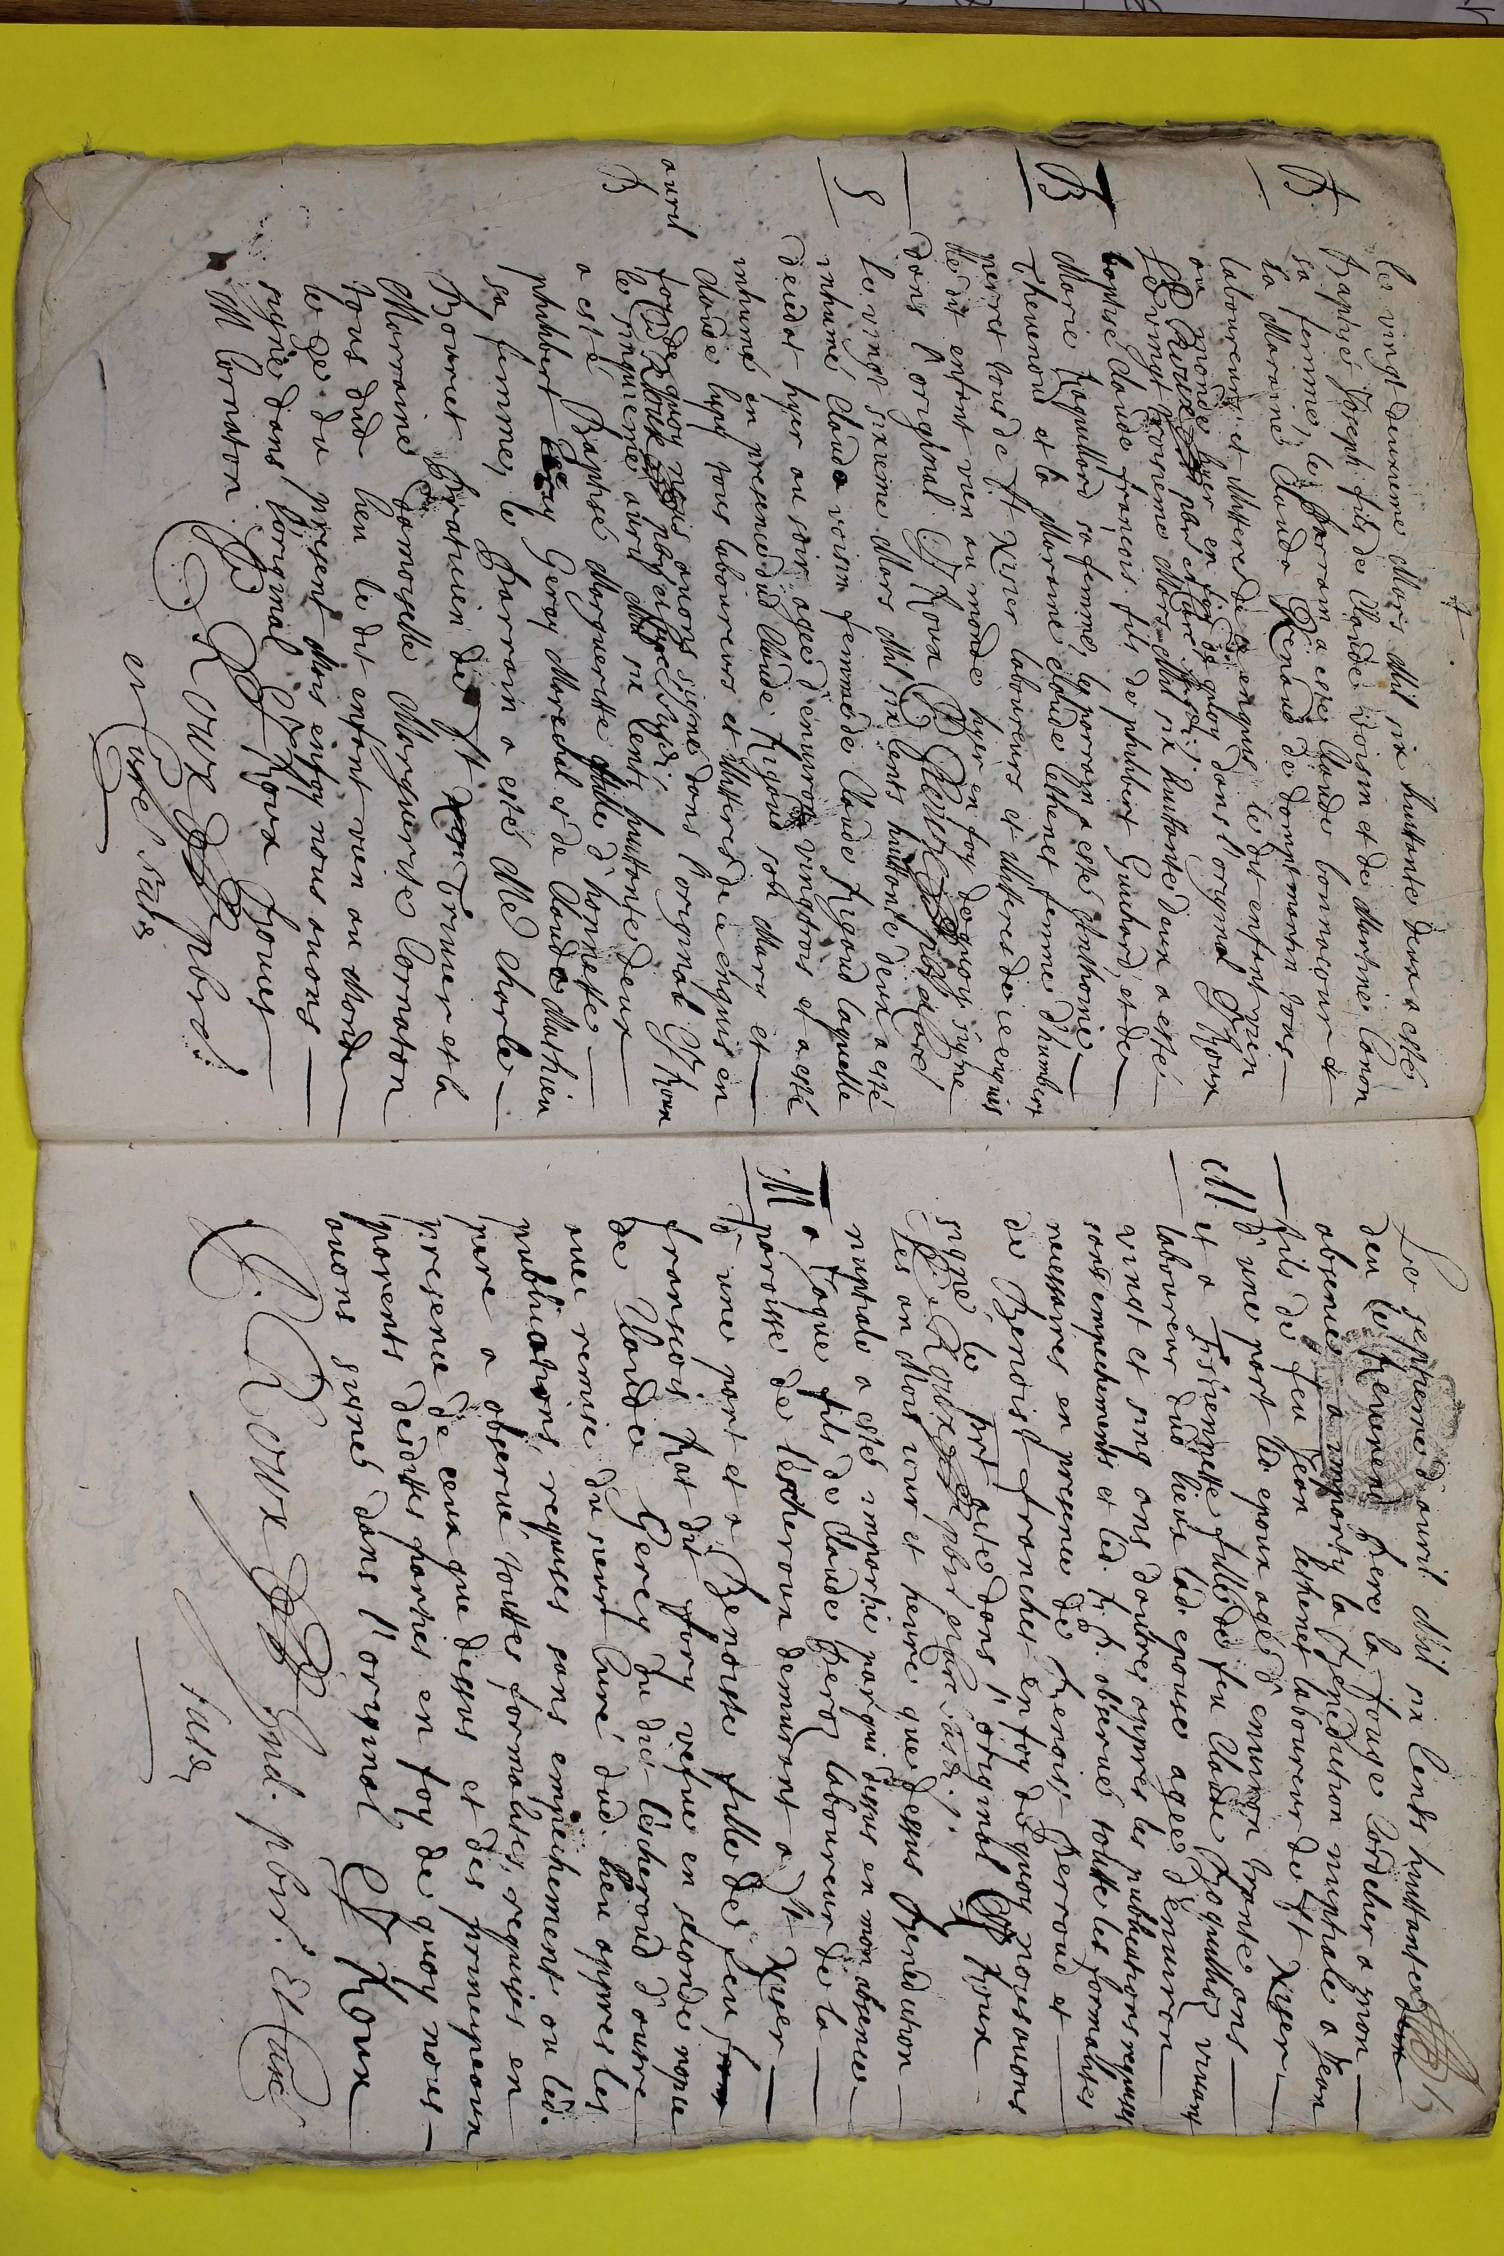 4
B
Le vingt deuxieme Mars Mil six huittante deux a esté
Baptisé Joseph fils de Claude voisin et de Martine Canon
sa femme, le parrain a esté Claude bonnacour et
la Maraine Clauda Renaud de dompt martin tous
laboureurs et Mitteres de ce enquis le dit enfant vien
au monde hyer en foy de quoy dans l'original G Roux
B
Le vingt troisieme Mars Mil six huittante deux a esté
baptisé Claude françois fils de philibert Guichard, et de
Marie Joquillard sa femme, le parrain a esté Anthoine
Thevenod et la Maraine Claude Lethenet femme d'humbert
perret tous de St Xivier laboureurs et Mitteres de ce enquis
le dit enfant vien au monde hyer en foy de quoy signe
dans l'original G Roux
S
Le vingt sixieme Mars Mil six Cents huittante deux a esté
inhumé Clauda voisin femme de Claude Rigaud laquelle
deceda hyer au soir agee d'environ vingttrois et a esté
inhumé en presence dud Claude Rigaud son Mary et
Claude tous laboureurs et Mitteres de ce enquis en
foy de quoy nous avons signe dans l'original G Roux
avril
B
le cinquieme avril Mil six Cents huittante deux
a esté Baptisé Margueritte fille d'honneste
philibert Gerey Marechal et de Clauda Mathieu
sa femme, le parrain a esté Me Charle
Bouvret praticien de St Trivier et la
Marraine damoiselle Marguerite Cornaton
tous dud lieu le dit enfant vien au Monde
le 2e du present Mois en foy nous avons
signé dans l'original G Roux Bouvet
M Cornaton
G Roux pbre
et Curé susd

Le septieme d'avril Mil six Cents huittante deux
deu le Reverend pere la fouge Cordelier a mon
absence a imparty la Benediction nuptiale a Jean
M
fils de feu Jean Lethenet laboureur de St Xivier
d'une part led. epoux agé d'environ trante ans
et a Fisiennette fille de feu Claude Joquillod vivant
laboureur dud lieu lad. epouse agee d'environ
vingt et sing ans d'autres appres les publications requises
sans empechements et led. R. P. observé toutte les formalites
necessaires en presence de Benoist Perroud et
de Benoist franchet en foy de quoy nous avons
signe le prt acte dans l'original G Roux
Les an Mois jour et heure que dessus Benediction
nuptiale a esté impartie par qui dessus en mon absence
M
a Jaque fils de Claude Bero laboureur de la
paroisse de l'escheroux demurant a St Xivier
d'une part et a Benoiste fille de feu
francois Rat dit fory vefve en seconde nopce
de Claude Gerey du dit l'escheroud d'autre
ave remise du sieur Curé dud. lieu appres les
publications, requises sans empechement ou led.
pere a observé touttes formalites, requises en
presence de ceux que dessus et des principaux
parents desdittes parties en foy de quoy nous
avons signés dans l'original G Roux
G. Roux pbre. et Curé
susd